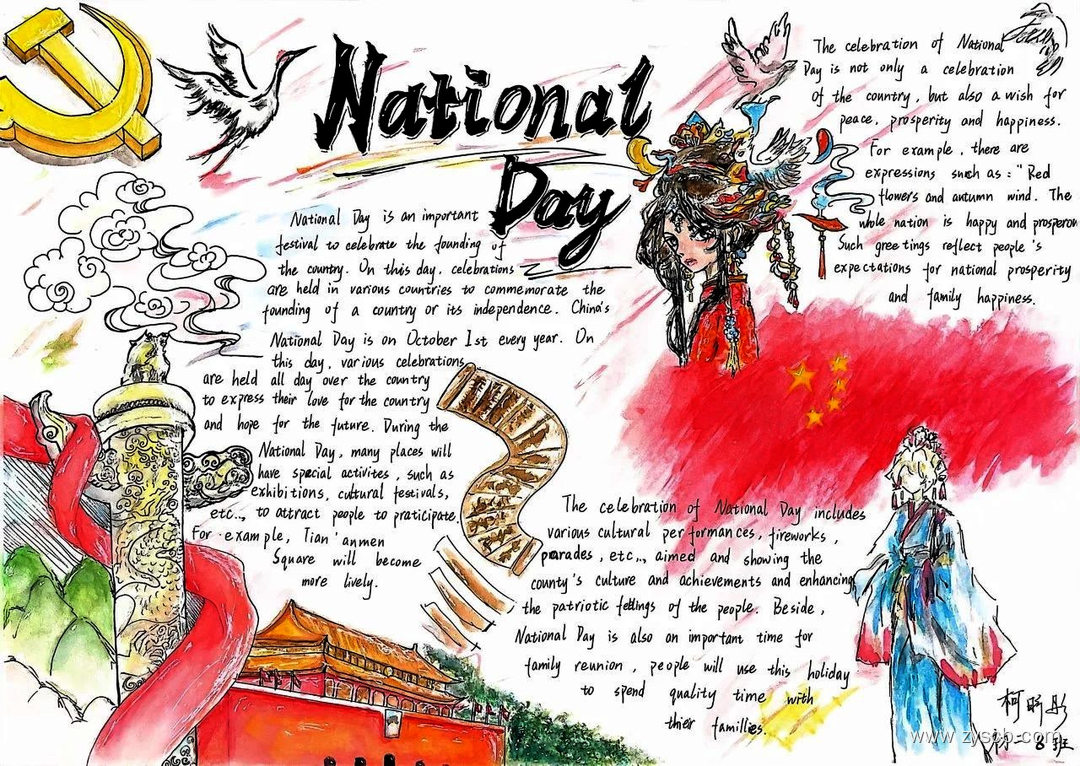 National
Day
National Day is an important
festival to celebrate the founding of
the country. On this day, celebrations
are held in various countries to commemorate the
founding of a country or its independence. China's
National Day is on October 1st every year. On
this day, various celebrations
are held all day over the country
to express their love for the country
and hope for the future. During the
National Day, many places will
have special activites, such as
exhibitions, cultural festivals,
etc..., to attract people to praticipate.
For example, Tian'anmen
Square will become
more lively.
The celebration of National
Day is not only a celebration
of the country, but also a wish for
peace, prosperity and happiness.
For example, there are
expressions such as: "Red
flowers and autumn wind. The
whole nation is happy and prosperon
Such greetings reflect people's
expectations for national prosperity
and family happiness.
The celebration of National Day includes
various cultural performances, fireworks,
parades, etc..., aimed and showing the
county's culture and achievements and enhancing
the patriotic feelings of the people. Beside,
National Day is also an important time for
family reunion, people will use this holiday
to spend quality time with
their families.
柯昕彤
初二8班
www.zyscb.com